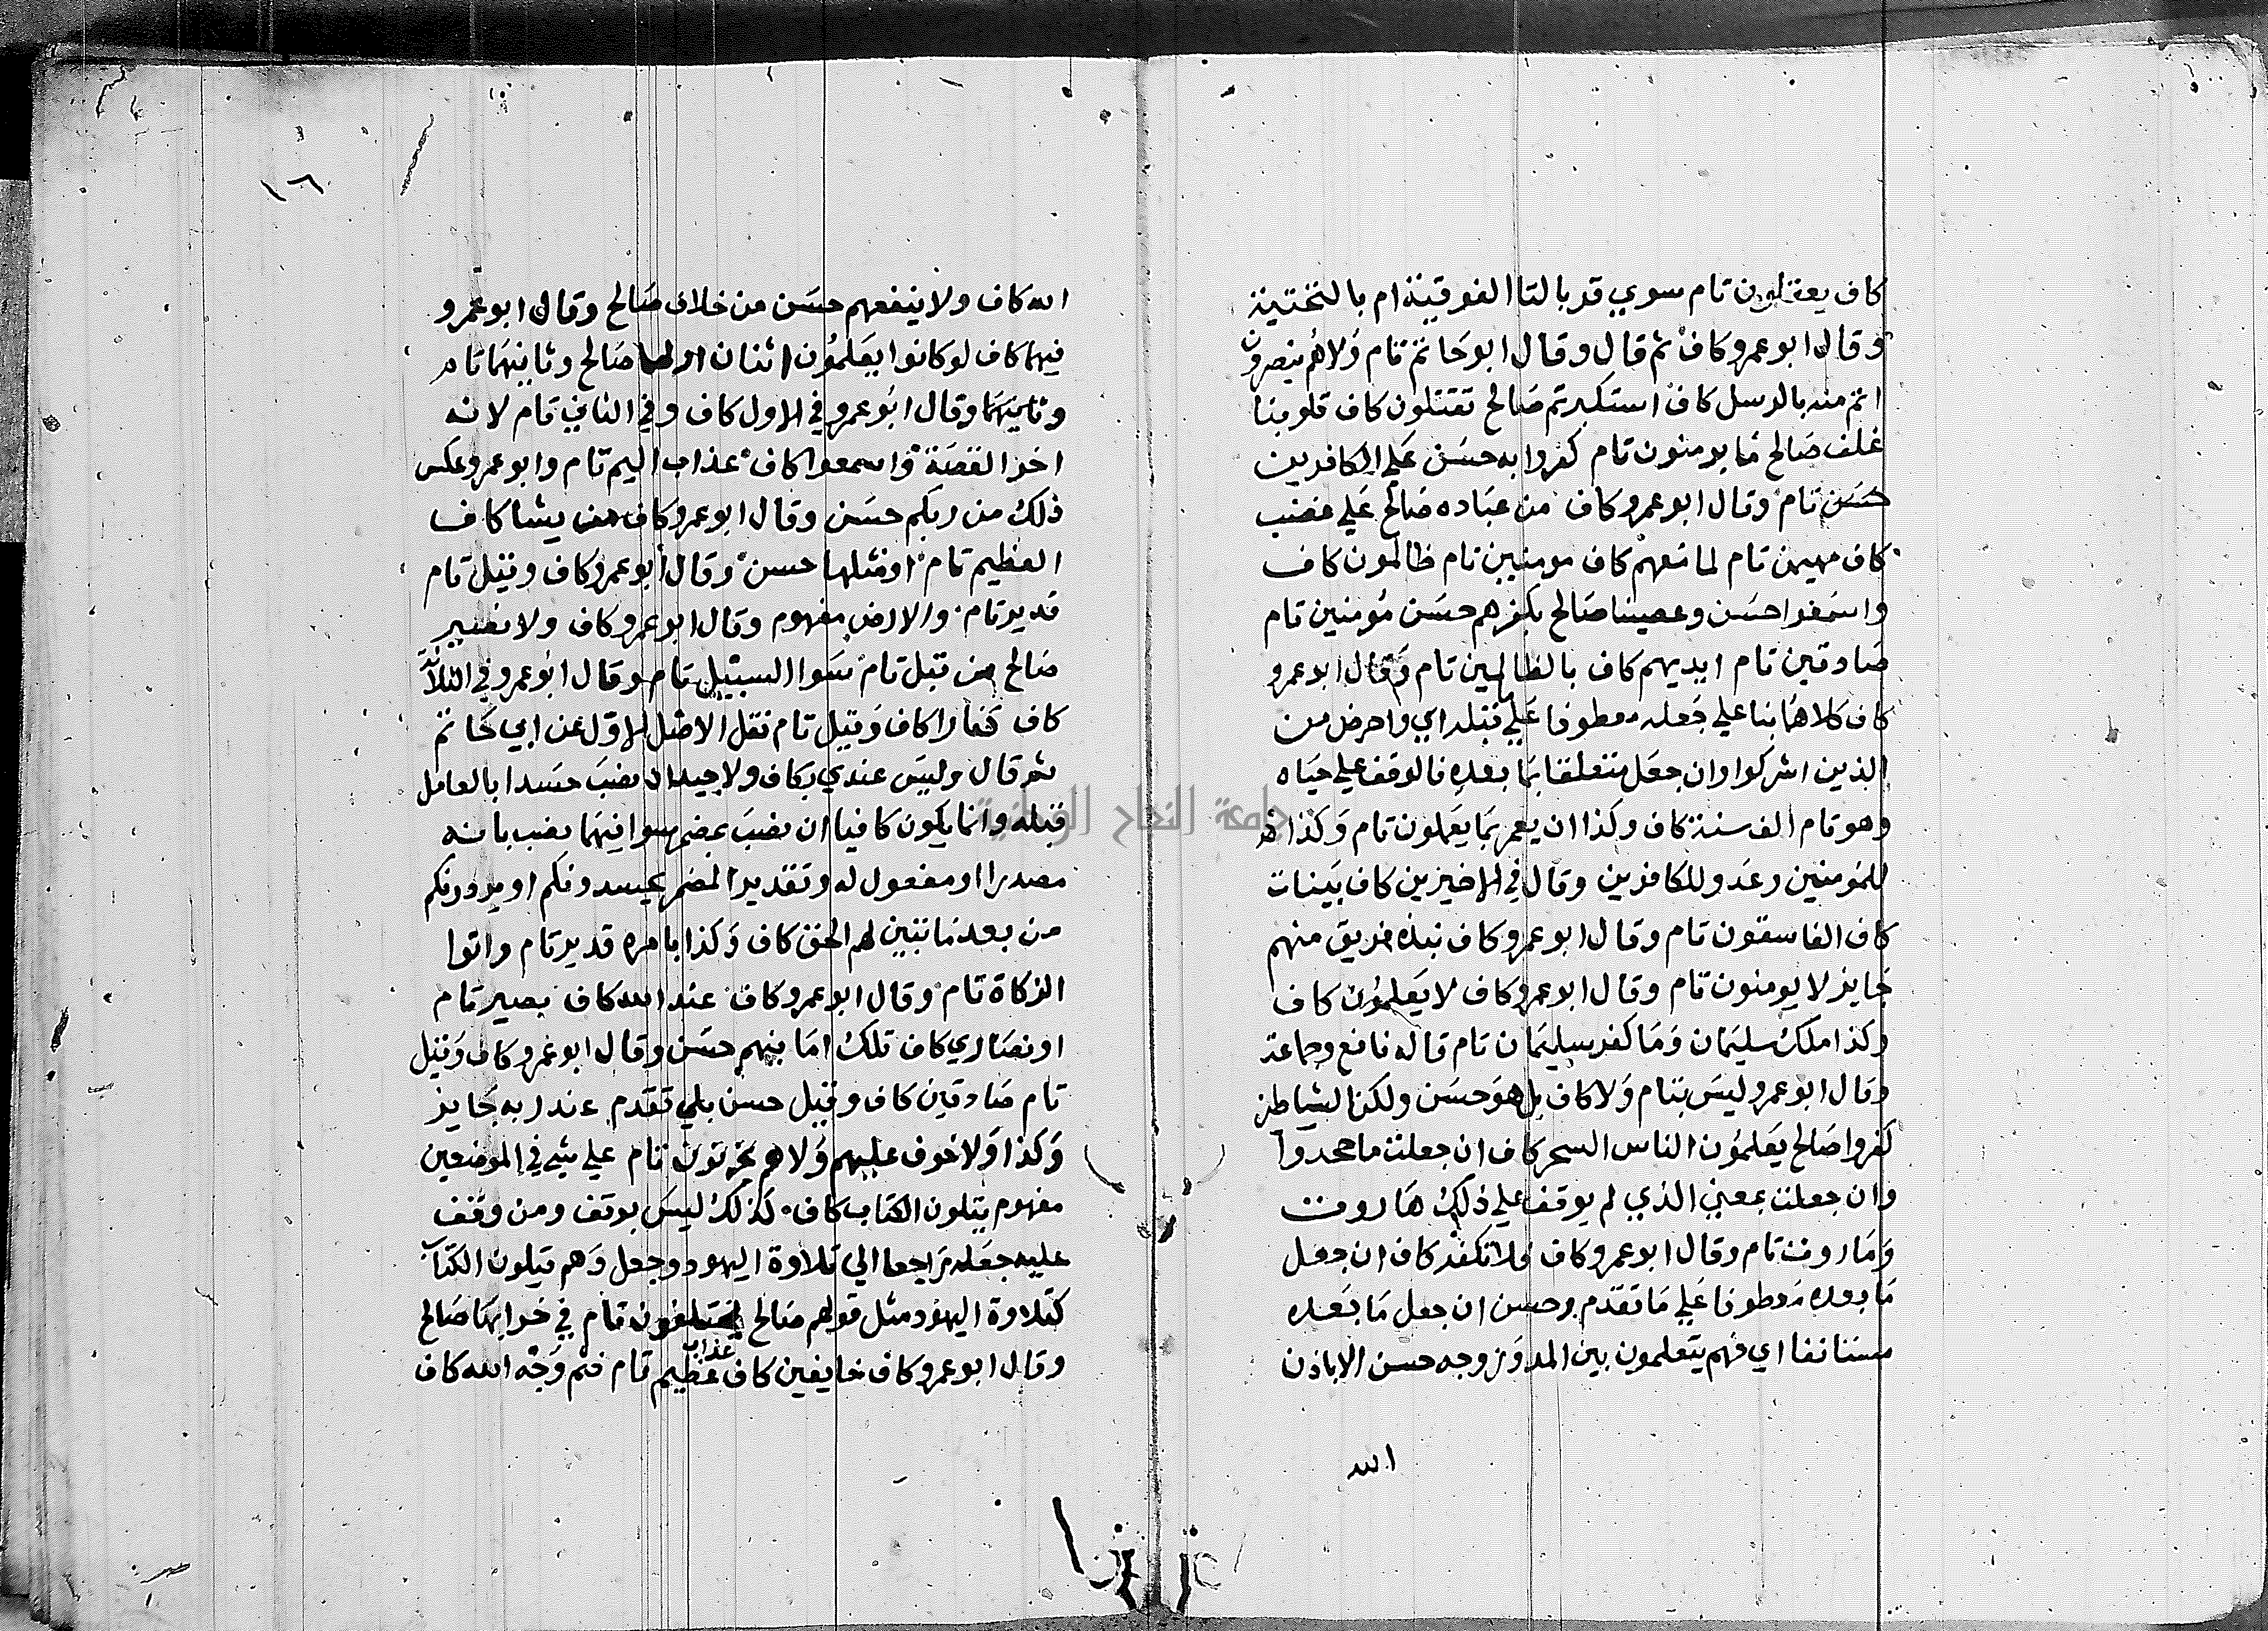 كاف يعقلون تام سوي قد بالتا الفوقية ام بالتحتية
وقال ابو عمرو كاف ثم قال وقال ابو حاتم تام ولا هم ينصرون
بالرسل كاف استكبرتم صالح تقتلون كاف قلوبنا
غلف صالح ما يومنون تام كفروا به حسن علي الكافرين
حسن تام وقال ابو عمرو كاف من عباده صالح علي غضب
كاف مهين تام لما معهم كاف مومنين تام ظالمون كاف
واسمعوا حسن وعصينا صالح بكفرهم حسن مومنين تام
صادقين تام ايديهم كاف بالظالمين تام وقال ابو عمرو
كاف كلاهما بنا علي جعله معطوفا علي قبله اي واحرص من
الذين اشركوا وان جعل متعلقا بما بعده فالوقف علي حياه
وهو تام الف سنة كاف وكذا ان يعمر بما يعملون تام وكذا
للمومنين وعدو للكافرين وقال في الاخيرين كاف بينات
كاف الفاسقون تام وقال ابو عمرو كاف نبذه فريق منهم
جايز لا يومنون تام وقال ابو عمرو كاف لا يعلمون كاف
وكذا ملك سليمان وما كفر سليمان تام قاله نافع وجماعة
وقال ابو عمرو ليس بتام ولا كاف بل هو حسن ولكن الشياطين
كفروا صالح يعلمون الناس السحر كاف ان جعلت ما جحدوا
وان جعلت بمعني الذي لم يوقف علي ذلك هاروت
وماروت تام وقال ابو عمرو كاف فلا تكفر كاف ان جعل
ما بعده معطوفا علي ما تقدم وحسن ان جعل ما بعده
مستانفا اي فهم يتعلمون بين المر وزوجه حسن الا باذن
الله
١٦
الله كاف ولا ينفعهم حسن من خلاق صالح وقال ابو عمرو
فيهما كاف لو كانوا يعلمون اثنان صالح وثانيهما تام
وثانيهما وقال ابو عمرو في الاول كاف وفي الثاني تام لانه
اخر القصة واسمعوا كاف عذاب اليم تام وابو عمرو عكس
ذلك من ربكم حسن وقال ابو عمرو كاف من يشا كاف
العظيم تام او مثلها حسن وقال ابو عمرو كاف وقيل تام
قدير تام والارض مفهوم وقال ابو عمرو كاف ولا نصير
صالح من قبل تام سوا السبيل تام وقال ابو عمرو في الثلاثة
كاف كفارا كاف وقيل تام نقل الاصل الاول عن ابي حاتم
ثم قال وليس عندي بكاف ولا جيد ان نصب حسدا بالعامل
قبله وانما يكون كافيا ان نصب بمضمر سوا فيهما نصب بانه
مصدرا او مفعول له وتقدير المضمر يحسدونكم او يردونكم
من بعد ما تبين لهم الحق كاف وكذا بامره قدير تام واتوا
الزكاة تام وقال ابو عمرو كاف عند الله كاف بصير تام
او نصاري كاف تلك امانيهم حسن وقال ابو عمرو كاف وقيل
تام صادقين كاف وقيل حسن بلي تقدم عند ربه جايز
وكذا ولا خوف عليهم ولا هم يحزنون تام علي شي في الموضعين
مفهوم يتلون الكتاب كاف كذلك ليس بوقف ومن وقف
عليه جعله راجعا الي تلاوة اليهود وجعل وهم يتلون الكتاب
كتلاوة اليهود مثل قولهم صالح يختلفون تام في خرابها صالح
وقال ابو عمرو كاف خايفين كاف عذاب عظيم تام فثم وجه الله كاف
جامعة النجاح الوطنية